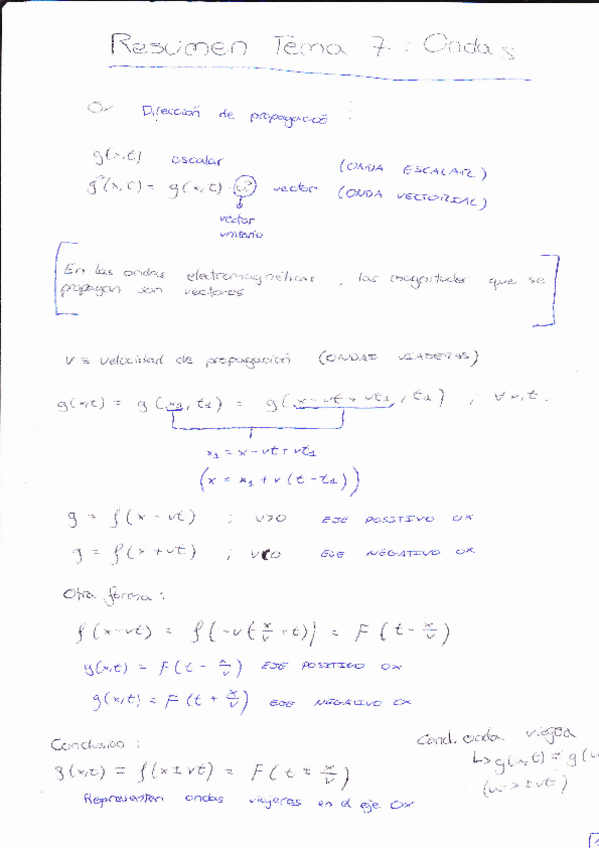 Resumen Tema 7: Ondas
Ox Dirección de propagació :
g(x,t) escalar (ONDA ESCALAR)
g⃗(x,t) = g(x,t) · vector (ONDA VECTORIAL)
vector
unitario
En las ondas electromagnéticas, las magnitudes que se
propagan son vectores
v ≡ velocidad de propagación (ONDAS VIAJERAS)
g(x,t) = g(x₁,t₁) = g(x-vt+vt₁, t₁) ; ∀x,t.
x₁ = x-vt+vt₁
(x = x₁ + v(t-t₁))
g = f(x-vt) ; v>0 EJE POSITIVO OX
g = f(x+vt) ; v<0 EJE NEGATIVO OX
Otra forma:
f(x-vt) = f(-v(x/v - t)) = F(t - x/v)
g(x,t) = F(t - x/v) EJE POSITIVO OX
g(x,t) = F(t + x/v) EJE NEGATIVO OX
Cond. onda viajera
Conclusión:
↳ g(x,t) = g(
g(x,t) = f(x±vt) = F(t ± x/v)
Representan ondas viajeras en el eje OX